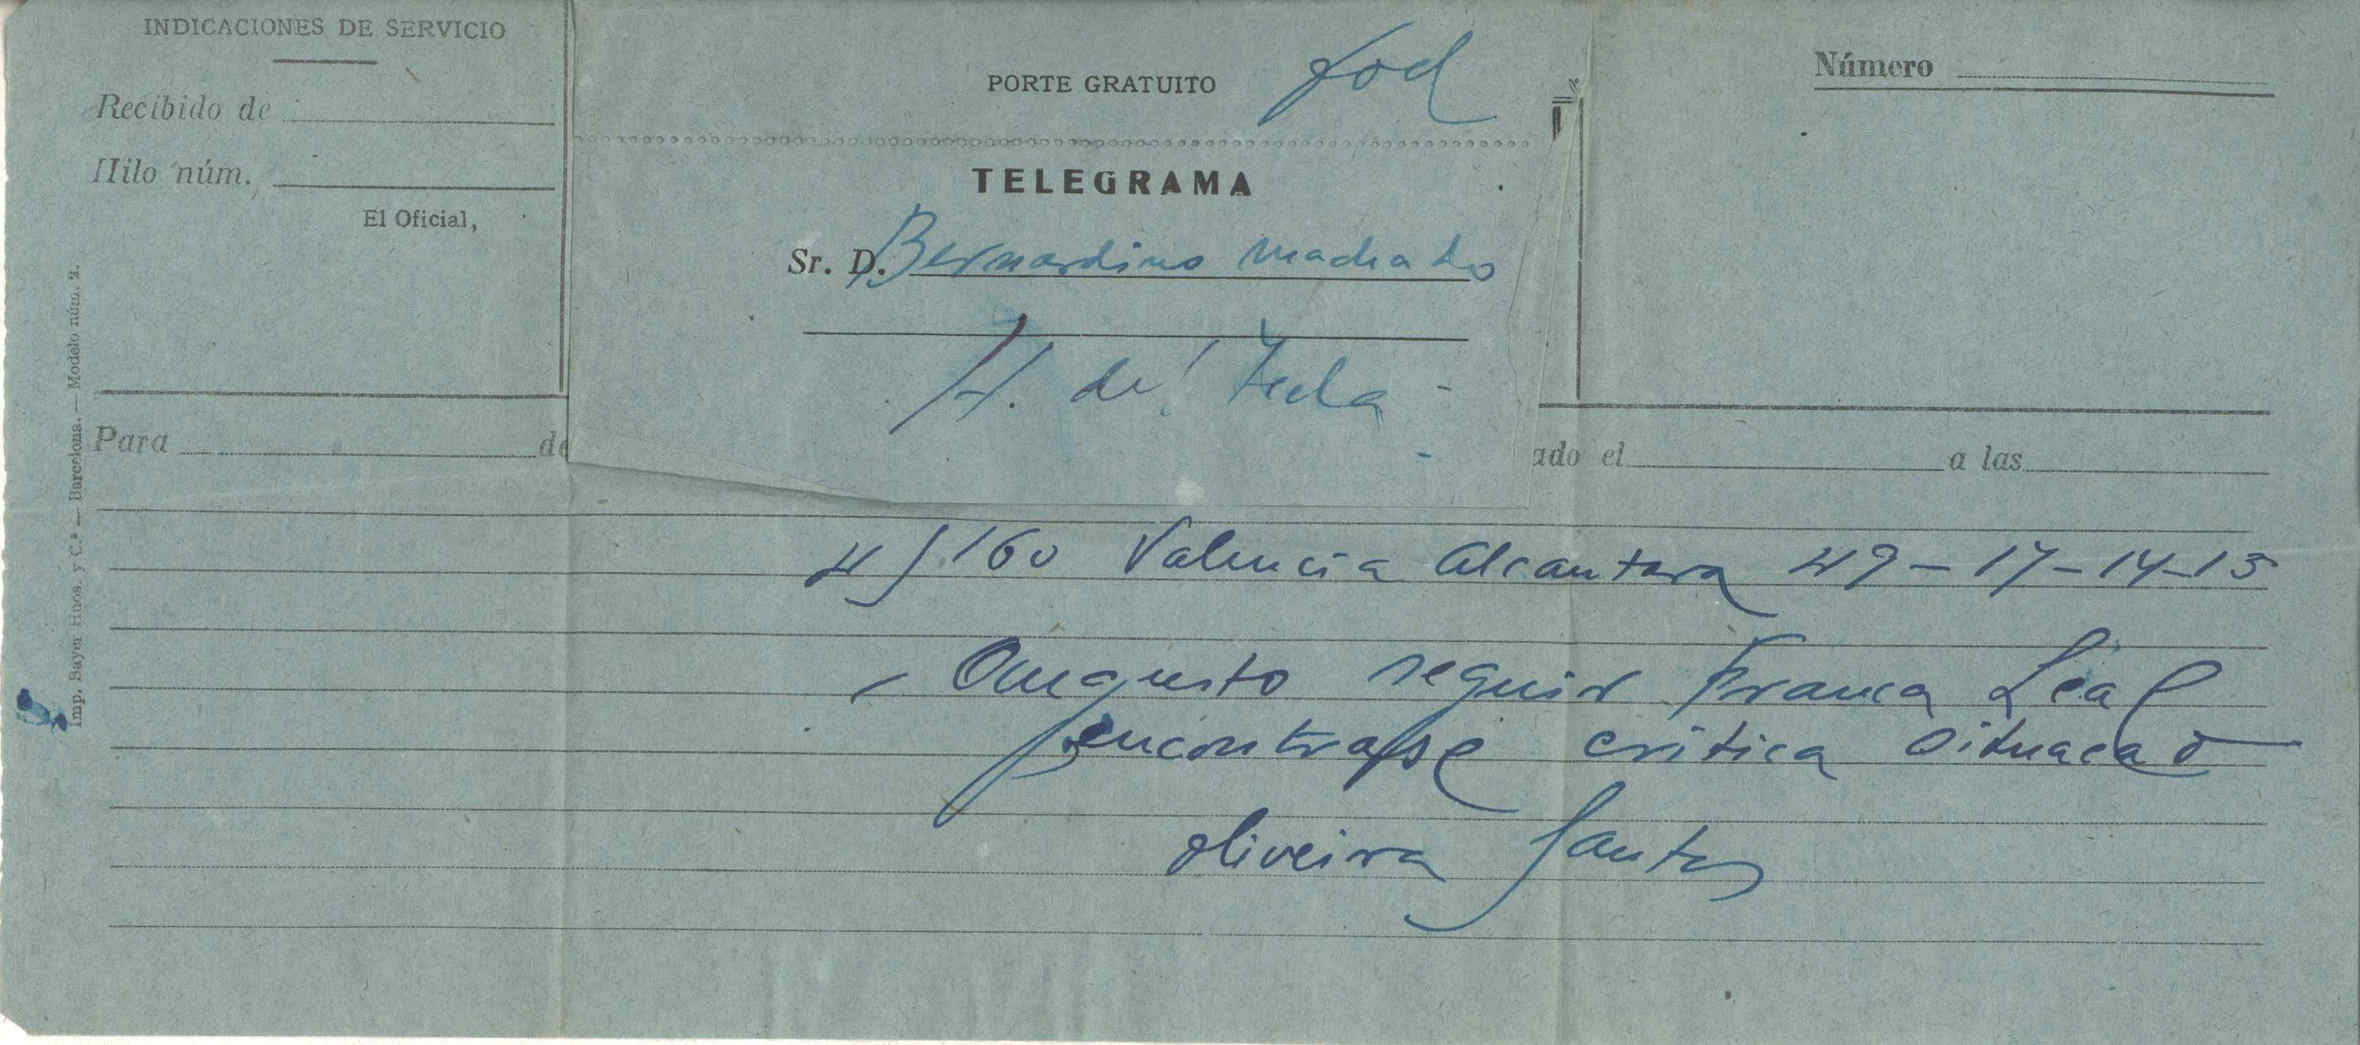 INDICACIONES DE SERVICIO
Recibido de
Hilo núm.
El Oficial,
PORTE GRATUITO
TELEGRAMA
Sr. D. Bernardino Machado
H. de Tecla
Número
Para de ado el a las
160 Valencia Alcantara 49-17-14-15
Augusto seguir Franca Leal
encontrase critica situacao
Oliveira Santos
Imp. Sayer Hnos. y C.ª — Barcelona. — Modelo núm. 2.